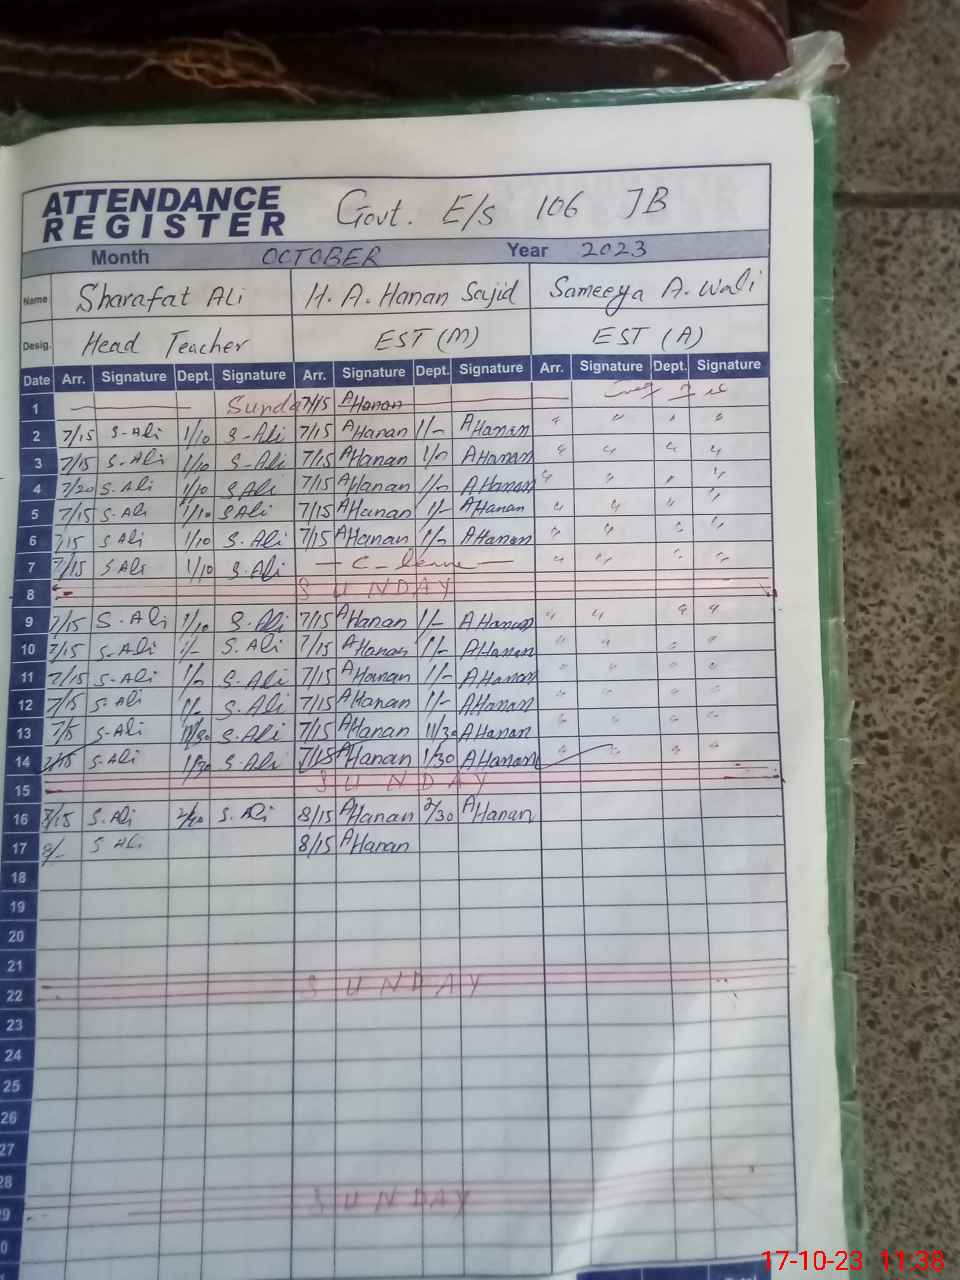 ATTENDANCE REGISTER Govt. E/S 106 JB
Month OCTOBER Year 2023
Name Sharafat Ali H. A. Hanan Sajid Sameeya A. Wali
Desig. Head Teacher EST (M) EST (A)
Date Arr. Signature Dept. Signature Arr. Signature Dept. Signature Arr. Signature Dept. Signature
1 Sunda 7/15 AHanan
2 7/15 S-Ali 1/10 S-Ali 7/15 AHanan 1/- AHanan " " " "
3 7/15 S-Ali 1/10 S-Ali 7/15 AHanan 1/- AHanan " " " "
4 7/20 S.Ali 1/10 S.Ali 7/15 AHanan 1/- AHanan " " " "
5 7/15 S-Ali 1/10 S.Ali 7/15 AHanan 1/- AHanan " " " "
6 7/15 S.Ali 1/10 S.Ali 7/15 AHanan 1/- AHanan " " " "
7 7/15 S.Ali 1/10 S.Ali " " " "
8 SUNDAY
9 7/15 S.Ali 1/10 S.Ali 7/15 AHanan 1/- AHanan " " " "
10 7/15 S-Ali 1/- S.Ali 7/15 AHanan 1/- AHanan " " " "
11 7/15 S-Ali 1/- S.Ali 7/15 AHanan 1/- AHanan " " " "
12 7/15 S-Ali 1/- S.Ali 7/15 AHanan 1/- AHanan " " " "
13 S-Ali 11/30 S.Ali 7/15 AHanan 11/30 AHanan " " " "
14 7/15 S.Ali 1/30 S.Ali 7/15 AHanan 1/30 AHanan " " " "
15 SUNDAY
16 8/15 S.Ali S.Ali 8/15 AHanan 2/30 AHanan
17 8/- S Ali 8/15 AHanan
18
19
20
21
22 SUNDAY
23
24
25
26
27
28
29 SUNDAY
17-10-23 11:38